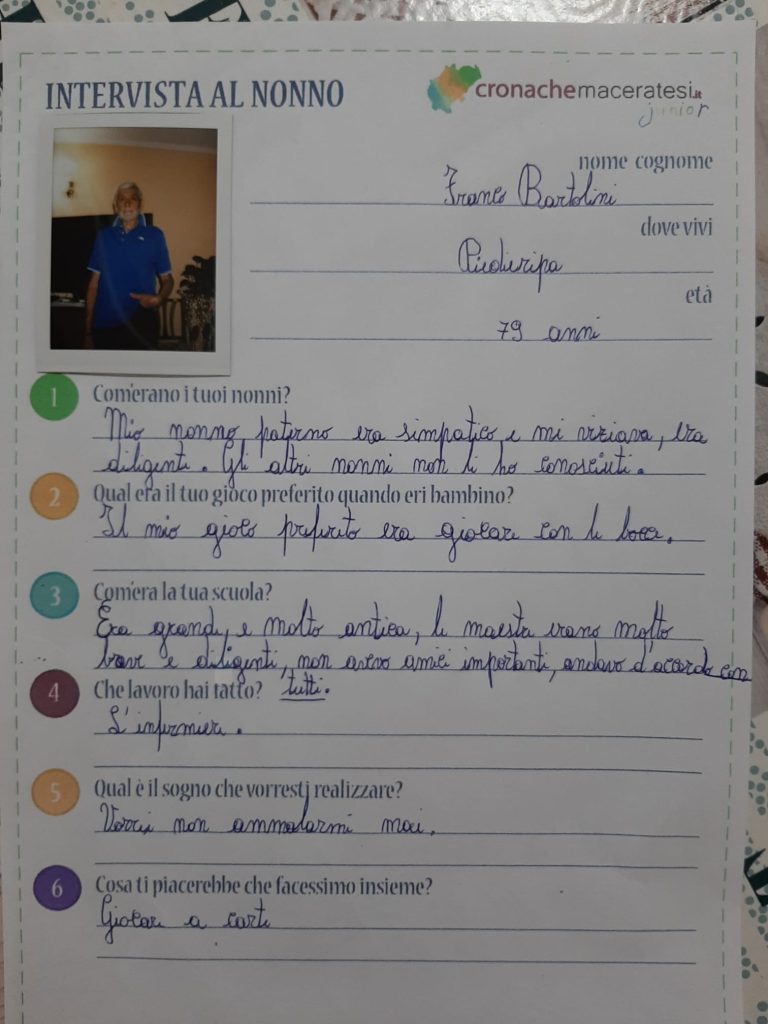 INTERVISTA AL NONNO
cronachemaceratesi.it
junior
nome cognome
Franco Bartolini
dove vivi
Piediripa
età
79 anni
1 Com'erano i tuoi nonni?
Mio nonno paterno era simpatico e mi viziava, era
diligente. Gli altri nonni non li ho conosciuti.
2 Qual era il tuo gioco preferito quando eri bambino?
Il mio gioco preferito era giocare con le bocce.
3 Com'era la tua scuola?
Era grande, e molto antica, le maestre erano molto
brave e diligenti, non avevo amici importanti, andavo d'accordo con
4 Che lavoro hai fatto? tutti.
L'infermiere.
5 Qual è il sogno che vorresti realizzare?
Vorrei non ammalarmi mai.
6 Cosa ti piacerebbe che facessimo insieme?
Giocare a carte